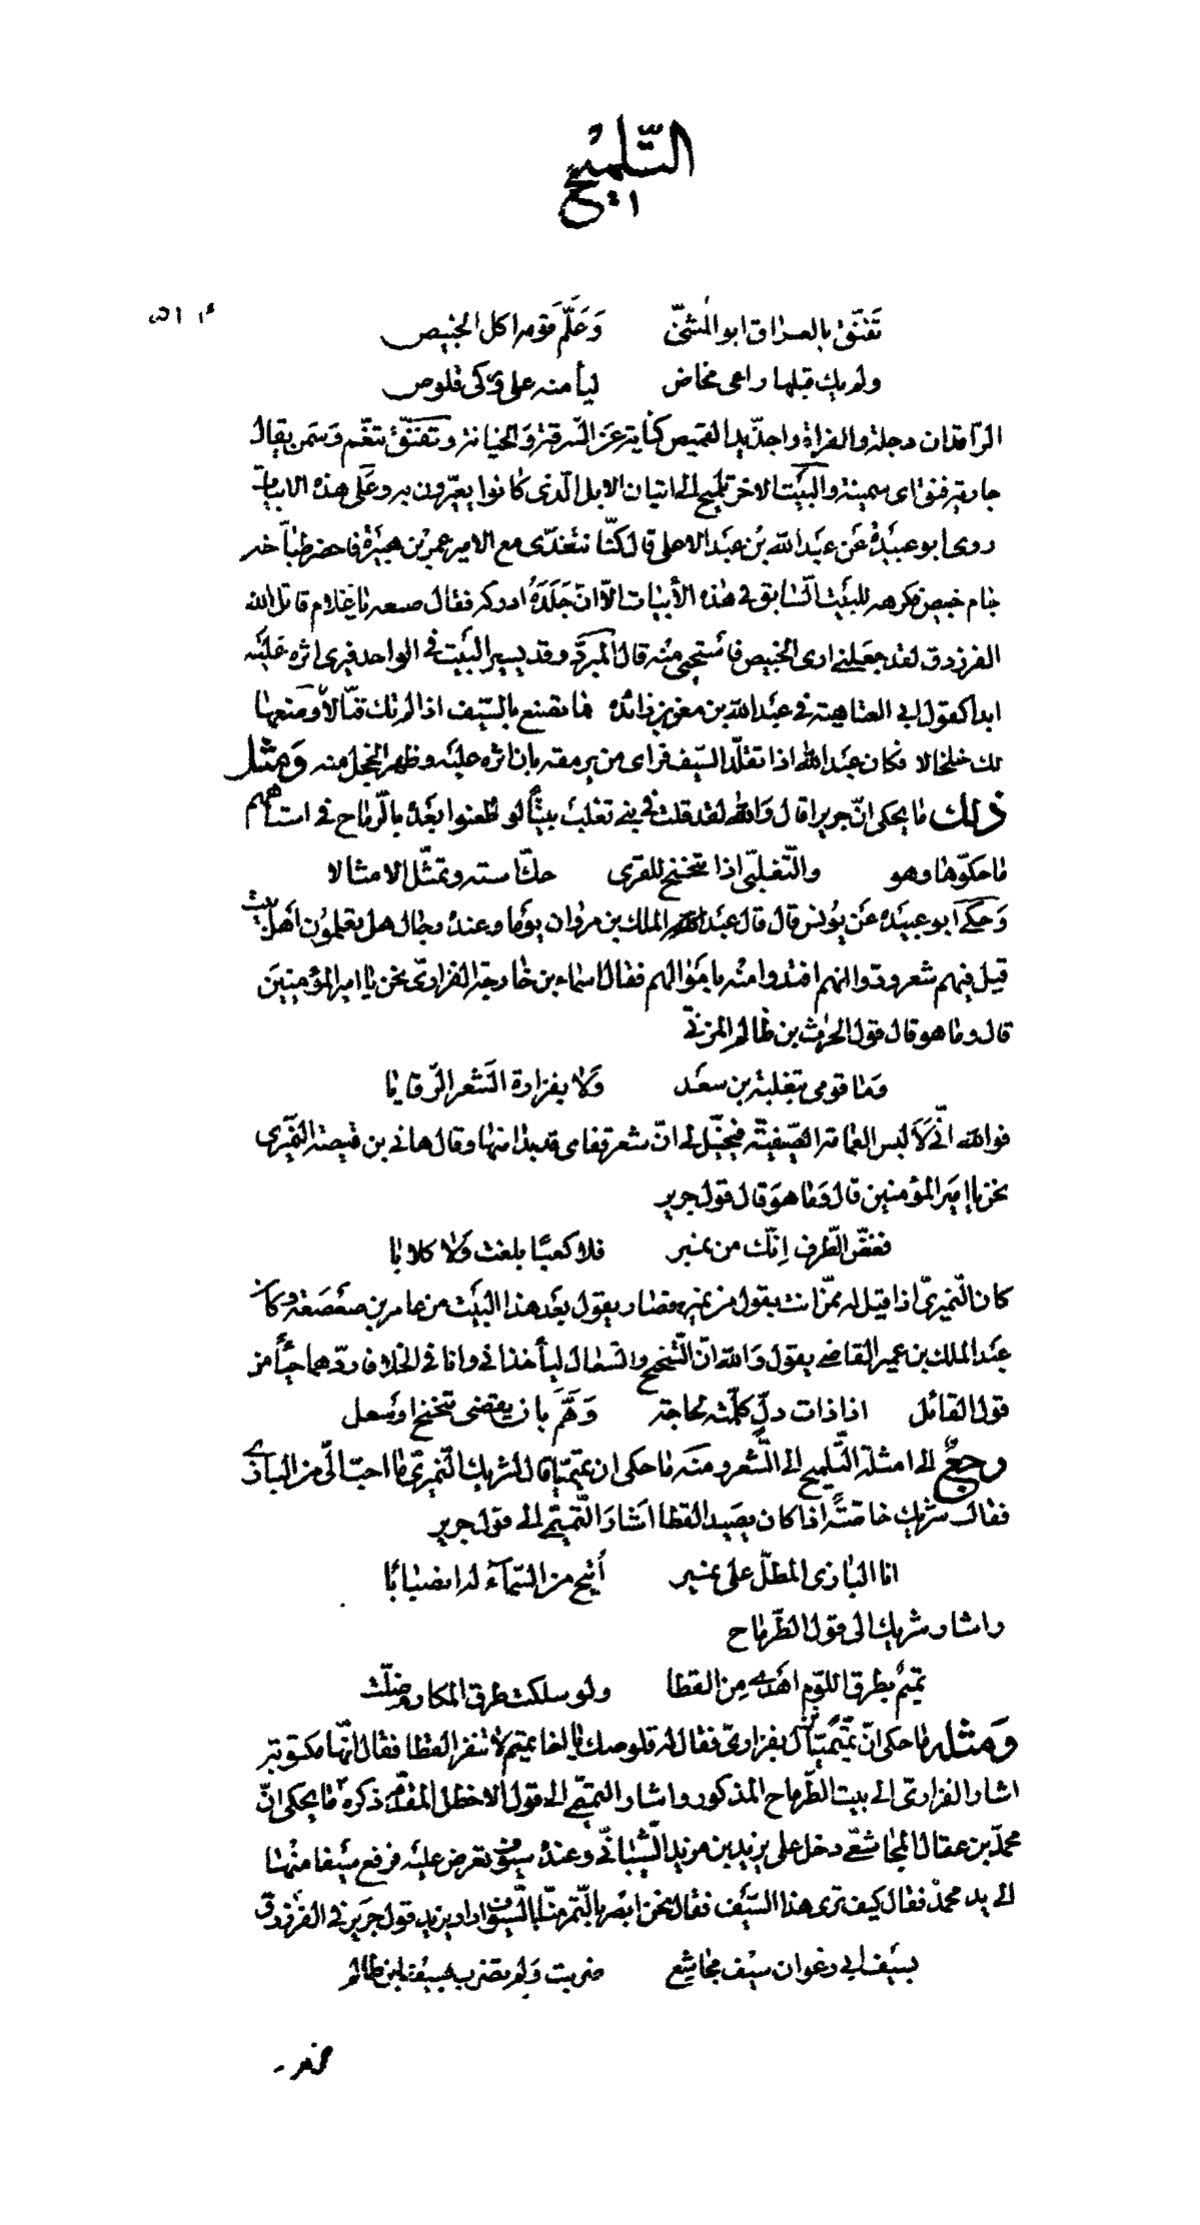 التلميح
تفنّق بالعراق ابو المثنّى وعلّم قومه اكل الخبيص
ولم يك قبلها راعى مخاض ليأمنه على وركى قلوص
الرافدان دجلة والفراة واحذّ يد القميص كناية عن السرقة والخيانة وتفنّق تنعّم وسمن يقال
جارية فنق اى سمينة والبيت الاخر تلميح الى اتيان الابل الذى كانوا يعيّرون به وعلى هذه الابيات
روى ابو عبيدة عن عبد الله بن عبد الاعلى قال كنّا نتغدّى مع الامير عمر بن هبيرة فاحضر طبّاخه
جام خبيص فكرهه للبيت السّابق فى هذه الأبيات الّا انّ جلده ادركه فقال ضعه يا غلام قاتل الله
الفرزدق لقد جعلنى ارى الخبيص فأستحى منه قال المبرّد وقد يسير البيت فى الواحد فيرى اثره عليه
ابدا كقول ابى العتاهية فى عبد الله بن معن بن زائدة فما تصنع بالسّيف اذا لم تك قتّالا وصغها
لك خلخالا فكان عبد الله اذا تقلّد السّيف فراى من يرمقه بان اثره عليه وظهر الخجل منه ومثل
ذلك ما يحكى انّ جريرا قال والله لقد قلت فى بنى تغلب بيتاً لو طعنوا بعده بالرّماح فى استاههم
ما حكّوها وهو والتّغلبىّ اذا تنحنح للقرى حكّ استه وتمثّل الامثالا
وحكى ابو عبيدة عن يونس قال قال عبد الملك بن مروان يوما وعنده رجال هل تعلمون اهل بيت
قيل فيهم شعر ودّوا انهم افتدوا منه باموالهم فقال اسماء بن خارجة الفزارىّ نحن يا امير المؤمنين
قال وما هو قال قول الحرث بن ظالم المرّىّ
وما قومى بثعلبة بن سعد ولا بفزارة الشعر الرّقابا
فوالله انّى لالبس العمامة الصّفيقة فيخيّل لى انّ شعر قفاى قد بدا منها وقال هانى بن قبيصة النميرى
نحن يا امير المؤمنين قال وما هو قال قول جرير
فغضّ الطّرف انّك من نمير فلا كعبًا بلغت ولا كلابا
كان النّميرىّ اذا قيل له ممّن انت يقول من نمير فصار يقول بعد هذا البيت من عامر بن صعصعة وكان
عبد الملك بن عمير القاضى يقول والله انّ التّنحنح والسّعال ليأخذانى وانا فى الخلاء فاردّهما حياً من
قول القائل اذا ذات دلّ كلّمته لحاجة وهمّ بان يقضى تنحنح او سعل
رجعٌ الى امثلة التّلميح الى الشّعر ومنه ما حكى ان تميميّا قال لشريك النّميرىّ ما احبّ الىّ من البازى
فقال شريك خاصّة اذا كان يصيد القطا اشار التّميمى الى قول جرير
انا البازى المطلّ على نمير أتيح من السّماء لها انصبابا
واشار شريك الى قول الطّرماح
تميمٌ بطرق اللّؤم اهدى من القطا ولو سلكت طرق المكارم ضلّت
ومثله ما حكى انّ تميميّا نزل بفزارىّ فقال له قلوصك يا اخا تميم لا تنفر القطا فقال انّها مكتوبة
اشار الفزارىّ الى بيت الطّرماح المذكور واشار التميمىّ الى قول الاخطل المقدّم ذكره ما يحكى انّ
محمّد بن عقال المجاشعىّ دخل على يزيد بن مزيد الشّيبانىّ وعنده سيوف تعرض عليه فرفع سيفا منها
الى يد محمد فقال كيف ترى هذا السّيف فقال نحن ابصر بالتّمر منّا بالسّيوف اراد يزيد قول جرير فى الفرزدق
بسيف ابى رغوان سيف مجاشع ضربت ولم تضرب بسيف ابن ظالم